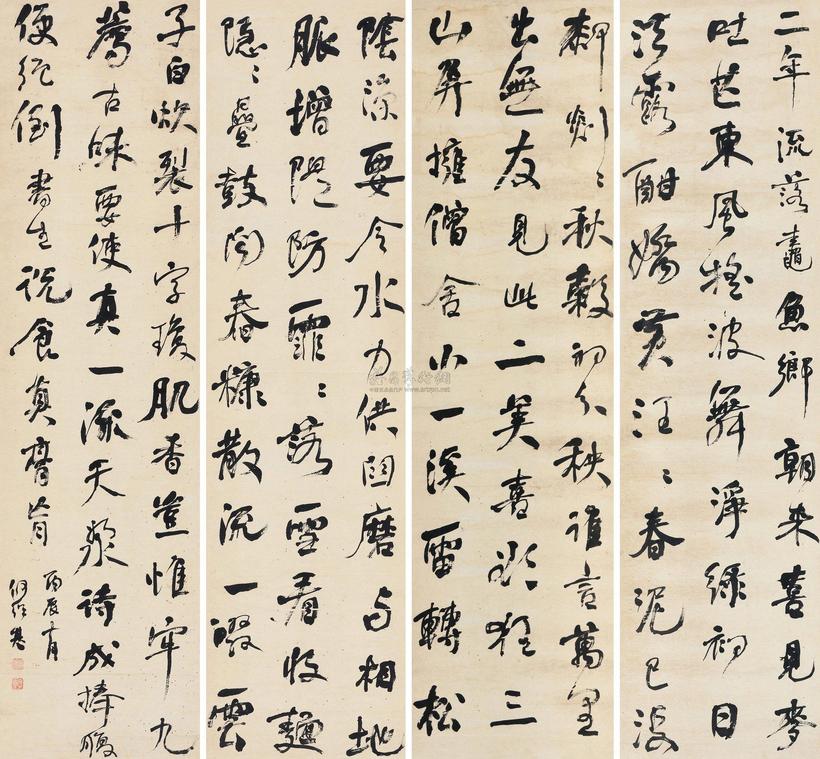 二年流落鼃魚鄉朝来喜見麥
吐芒東風搖波舞淨綠初日
泫露酣嬌黃汪〻春泥已没
厀剡〻秋穀初分秧誰言萬里
出無友見此二美喜欲狂三
山屏擁僧舍小一溪雷轉松
陰涼要令水力供臼磨与相地
脈增隄防霏〻落雪看收麵
隱〻疊鼓聞舂糠散流一啜雲
子白炊裂十字瓊肌香豈惟牢九
薦古味要使真一流天漿詩成捧腹
便絕倒書生說食真膏肓
丙辰月
何紹基